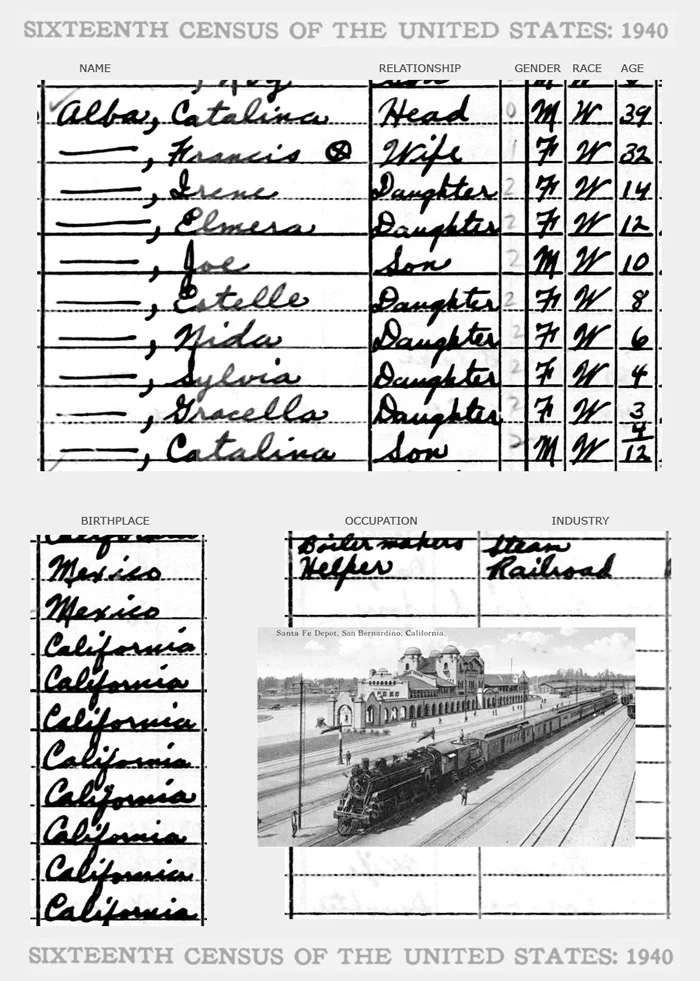 SIXTEENTH CENSUS OF THE UNITED STATES: 1940
NAME RELATIONSHIP GENDER RACE AGE
Alba, Catalina Head 0 M W 39
—, Francis ⓧ Wife 1 F W 32
—, Irene Daughter 2 F W 14
—, Elmera Daughter 2 F W 12
—, Joe Son 2 M W 10
—, Estelle Daughter 2 F W 8
—, Nida Daughter 2 F W 6
—, Sylvia Daughter 2 F W 4
—, Gracella Daughter 2 F W 3
—, Catalina Son 2 M W 4/12
BIRTHPLACE OCCUPATION INDUSTRY
Boilermakers Steam
Mexico Helper Railroad
Mexico
California
California
California
California
California
California
California
California
Santa Fe Depot, San Bernardino, California.
SIXTEENTH CENSUS OF THE UNITED STATES: 1940